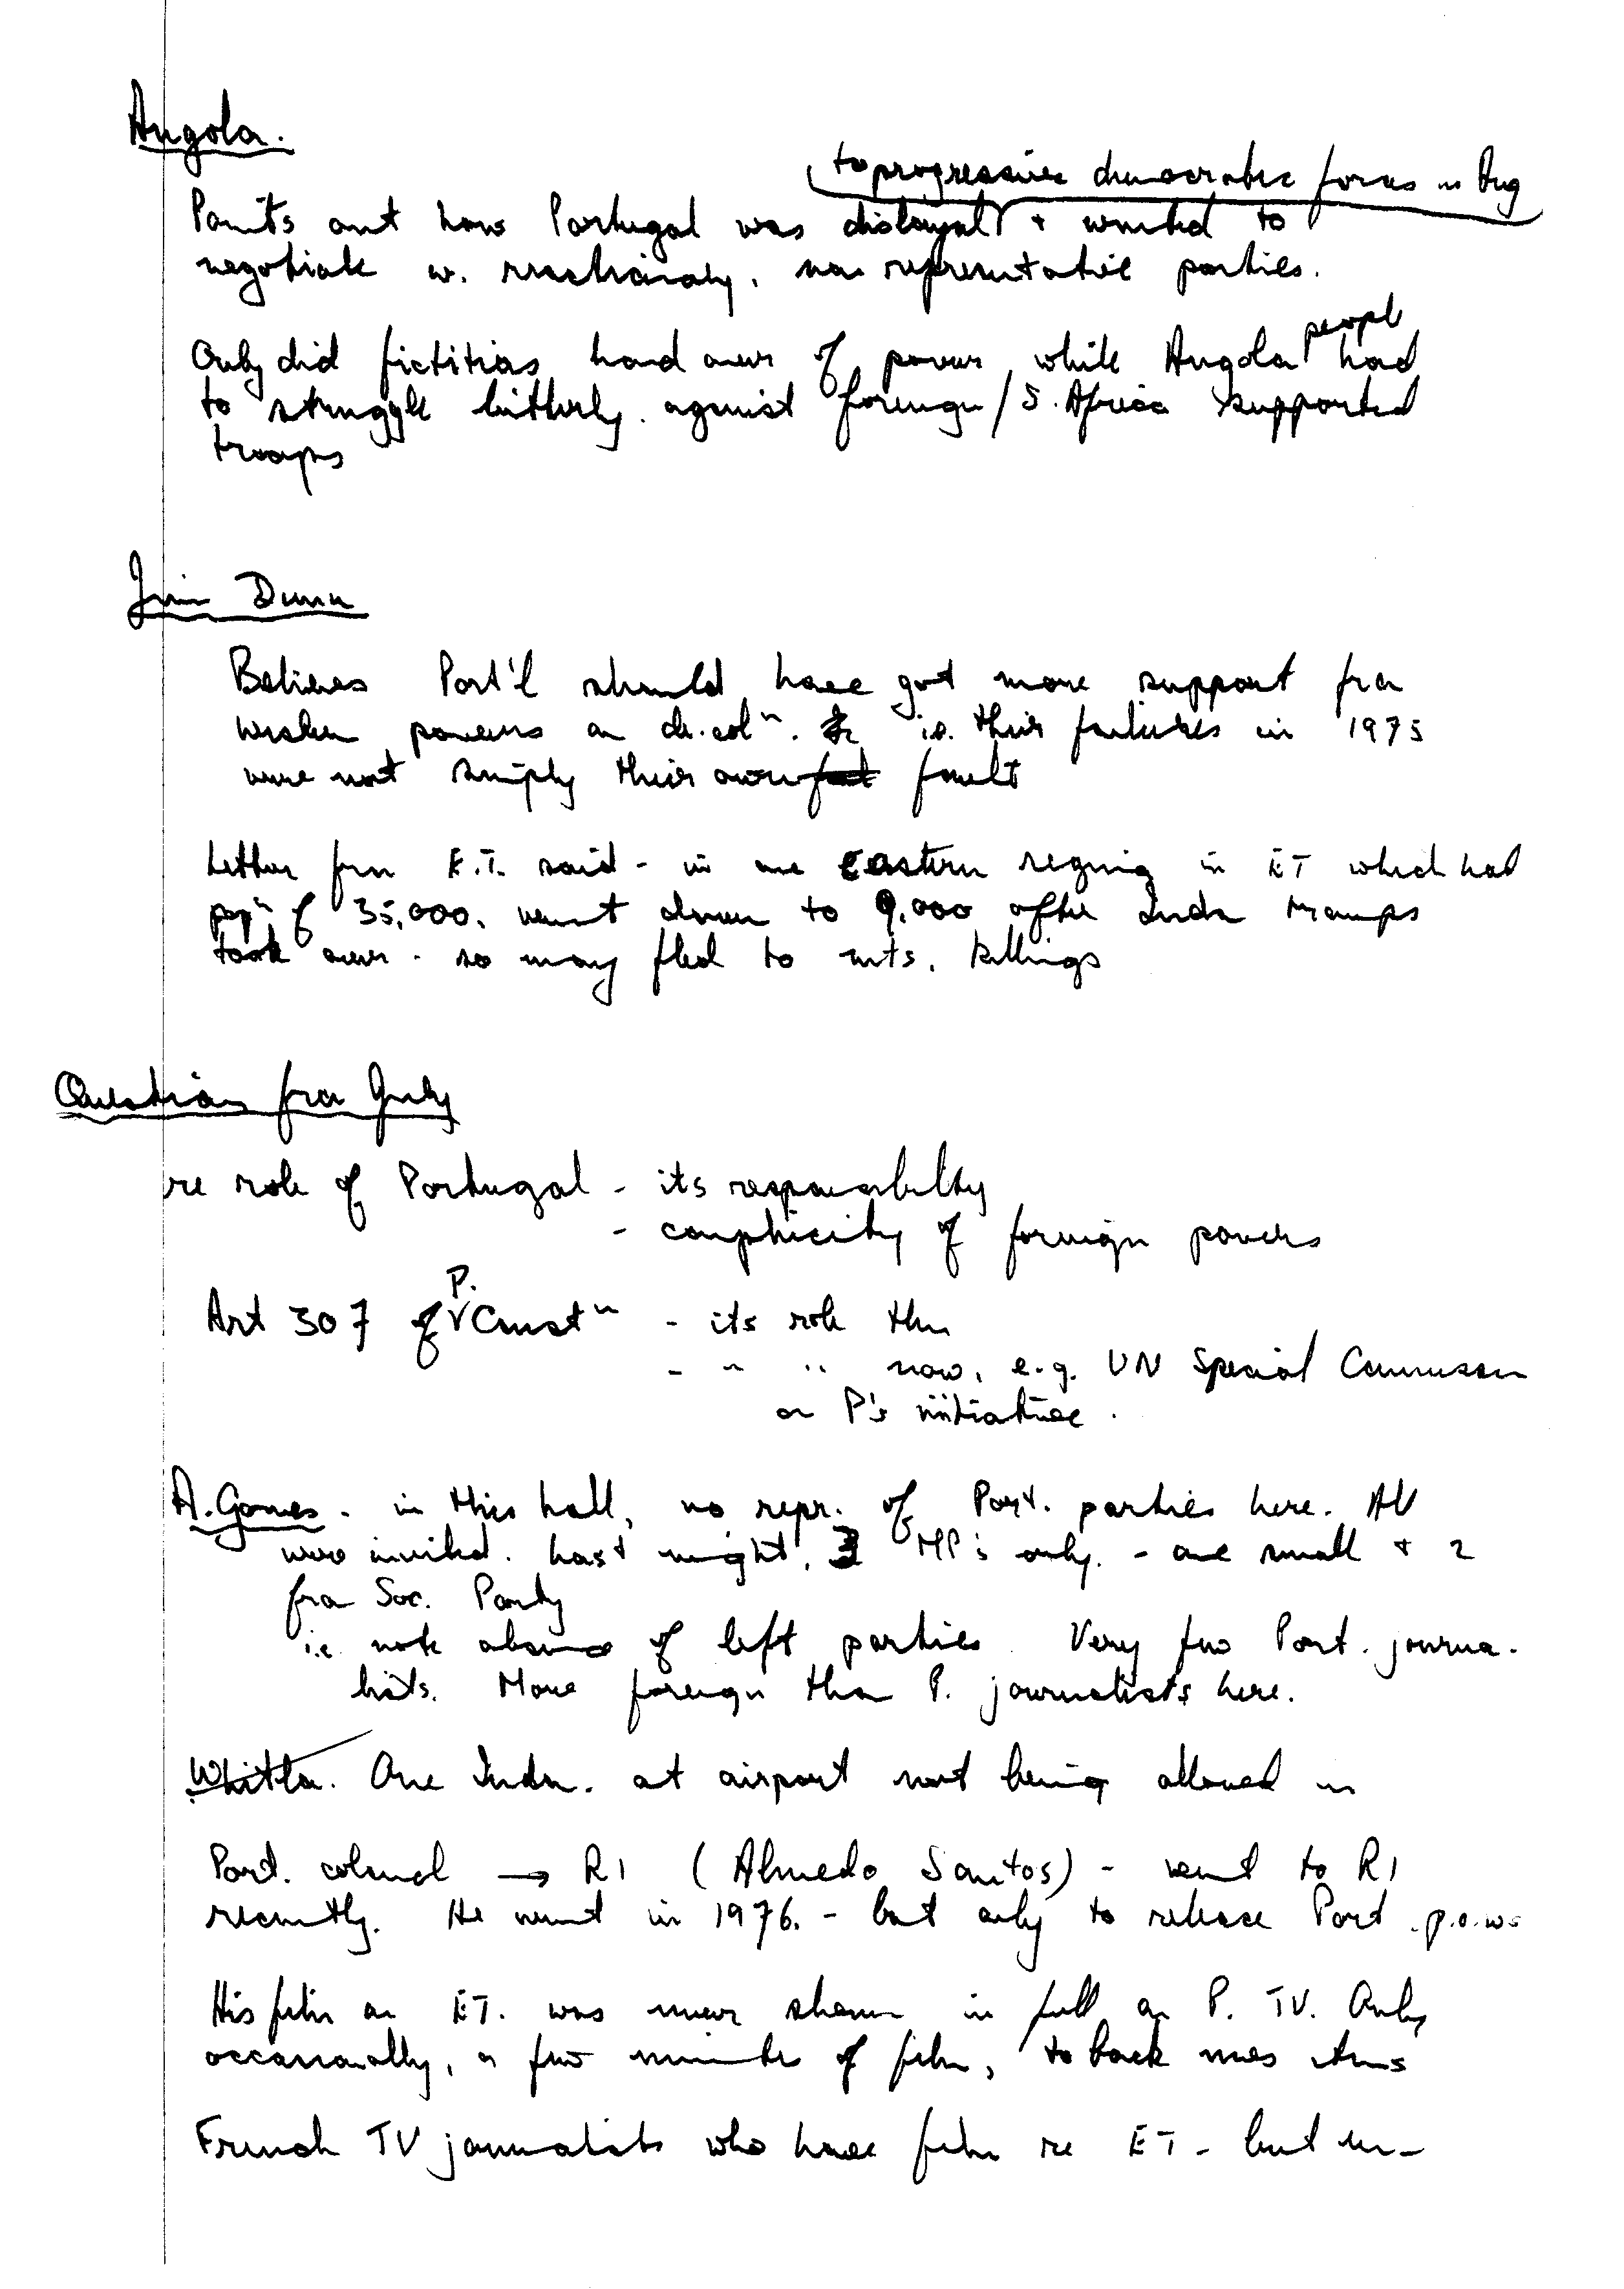 Angola.
to progressive democratic forces in Ang
Points out how Portugal was disloyal + wanted to
negotiate w. reactionary, non representative parties.
people
Only did fictitious hand over of power while Angola had
to struggle bitterly against foreign / S. Africa supported
troops
Jim Dunn
Believes Port'l should have got more support from
western powers on de.coln. i.e. their failures in 1975
were not simply their own fault
Letter from E.T. said - in one eastern region in ET which had
popn of 35,000. went down to 9,000 after Indon troops
took over - so many fled to mts. killings
Question from
re role of Portugal - its responsibility
- complicity of foreign powers
P.
Art 307 of Constn - its role then
- " " now, e.g. UN Special Commission
on P's initiative.
A. Gomes. in this hall, no repr. of Port. parties here. All
were invited. Last night, 3 MP's only. - one small + 2
from Soc. Party
i.e. note absence of left parties. Very few Port. journa-
lists. More foreign than P. journalists here.
Whitla. One Indon. at airport not being allowed in
Port. colonel → RI (Almedo Santos) - went to RI
recently. He went in 1976. - but only to release Port. p.o.ws
His film on ET. was never shown in full on P. TV. Only
occasionally, a few minutes of film, to back news items
French TV journalists who have film re ET - but